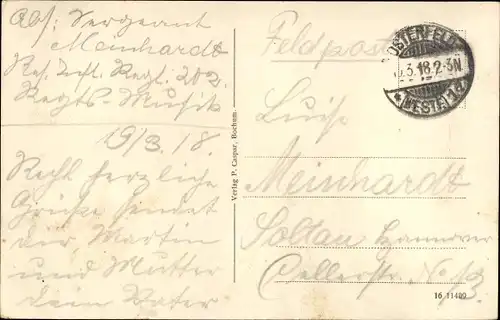 Abs: Sergeant
Meinhardt
Res. Inft. Regt. 202.
Regts-Musik
19/3.18.
Recht herzliche
Grüße sendet
dir, Martin
und Mutter
dein Vater
Verlag P. Caspar, Bochum.
Feldpost
OSTERFELD
3.18.2-3N
* (WESTF) 1 *
Luise
Meinhardt
Soltau Hannover
Cellerstr. No 13.
16 11409